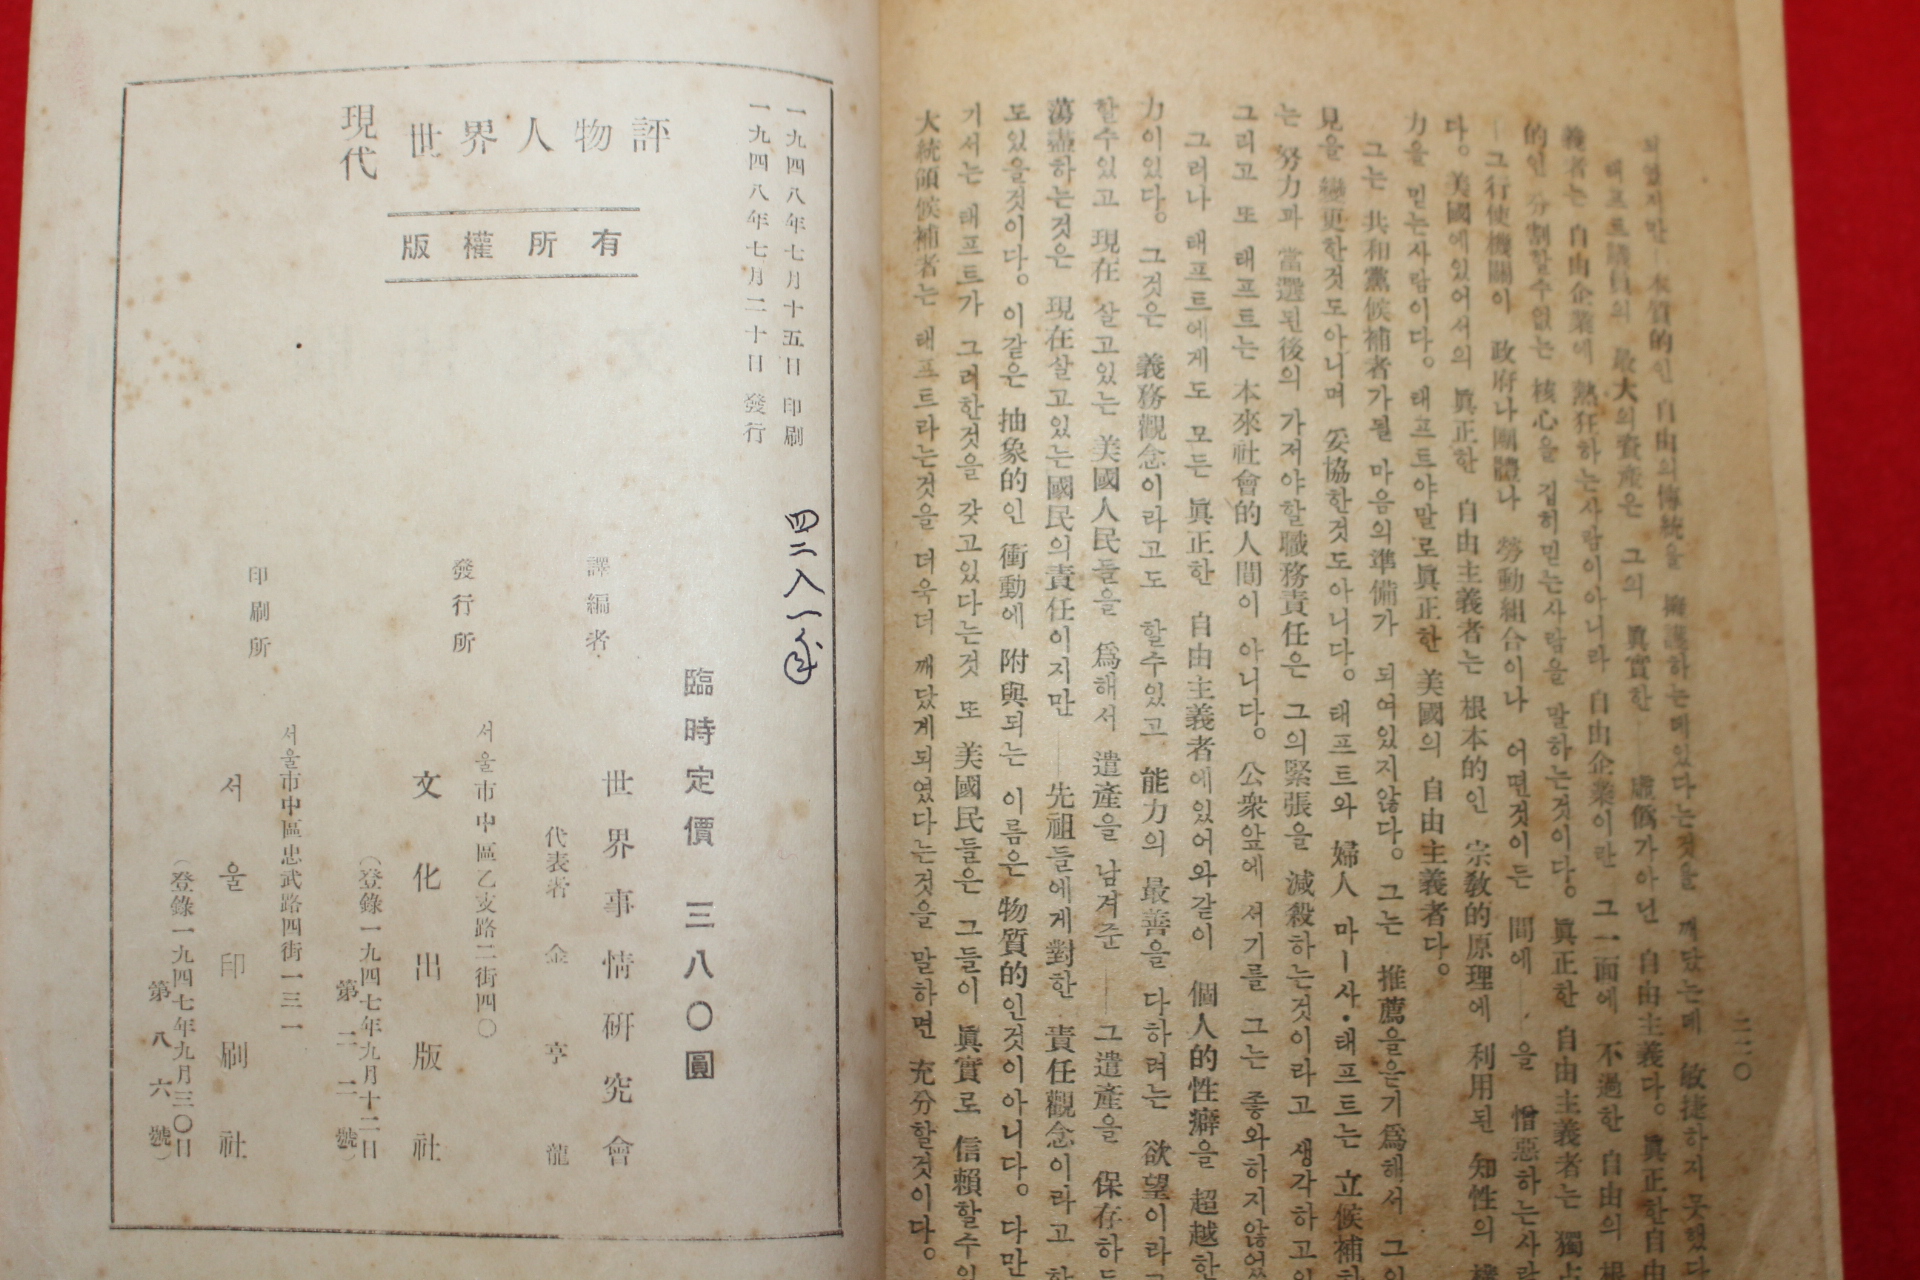 二二〇
되였지만—本質的인 自由의傳統을 擁護하는데있다는것을 깨닸는데 敏捷하지못했다
태프트議員의 最大의資產은 그의 眞實한—虛僞가아닌 自由主義다。眞正한自由
義者는 自由企業에 熱狂하는사람이아니라 自由企業이란 그一面에 不過한 自由의 根
的인 分割할수없는 核心을 깁히믿는사람을 말하는것이다。眞正한 自由主義者는 獨占
—그行使機關이 政府나團體나 勞動組合이나 어떤것이든 間에—을 憎惡하는사람
다。美國에있어서의 眞正한 自由主義者는 根本的인 宗敎的原理에 利用된 知性의
力을 믿는사람이다。태프트야말로眞正한 美國의 自由主義者다。
그는 共和黨候補者가될 마음의準備가 되여있지않다。그는 推薦을을기爲해서 그의
見을 變更한것도아니며 妥協한것도아니다。태프트와 婦人 마—사•태프트는 立候補하
는 努力과 當選된後의 가저야할職務責任은 그의緊張을 減殺하는것이라고 생각하고있
그리고 또 태프트는 本來社會的人間이 아니다。公衆앞에 서기를 그는 좋와하지않었
그러나 태프트에게도 모든 眞正한 自由主義者에있어와같이 個人的性癖을 超越한
力이있다。그것은 義務觀念이라고도 할수있고 能力의 最善을 다하려는 欲望이라고
할수있고 現在 살고있는 美國人民들을 爲해서 遺產을 남겨준—그遺產을 保存하
蕩盡하는것은 現在살고있는國民의責任이지만—先祖들에게對한 責任觀念이라고
도있을것이다。이같은 抽象的인 衝動에 附與되는 이름은物質的인것이아니다。다만
기서는 태프트가 그러한것을 갖고있다는것 또 美國民들은 그들이 眞實로 信賴할수있
大統領候補者는 태프트라는것을 더욱더 깨닸게되였다는것을 말하면 充分할것이다。
現代 世界人物評
版權所有
一九四八年七月十五日 印刷
一九四八年七月二十日 發行
四二八一年
臨時定價 三八〇圓
譯編者 世界事情硏究會
代表者 金亨龍
서울市中區乙支路二街四〇
發行所 文化出版社
(登錄一九四七年九月十二日
第二二二號)
서울市中區忠武路四街一三一
印刷所 서울印刷社
(登錄一九四七年九月三〇日
第八六號)